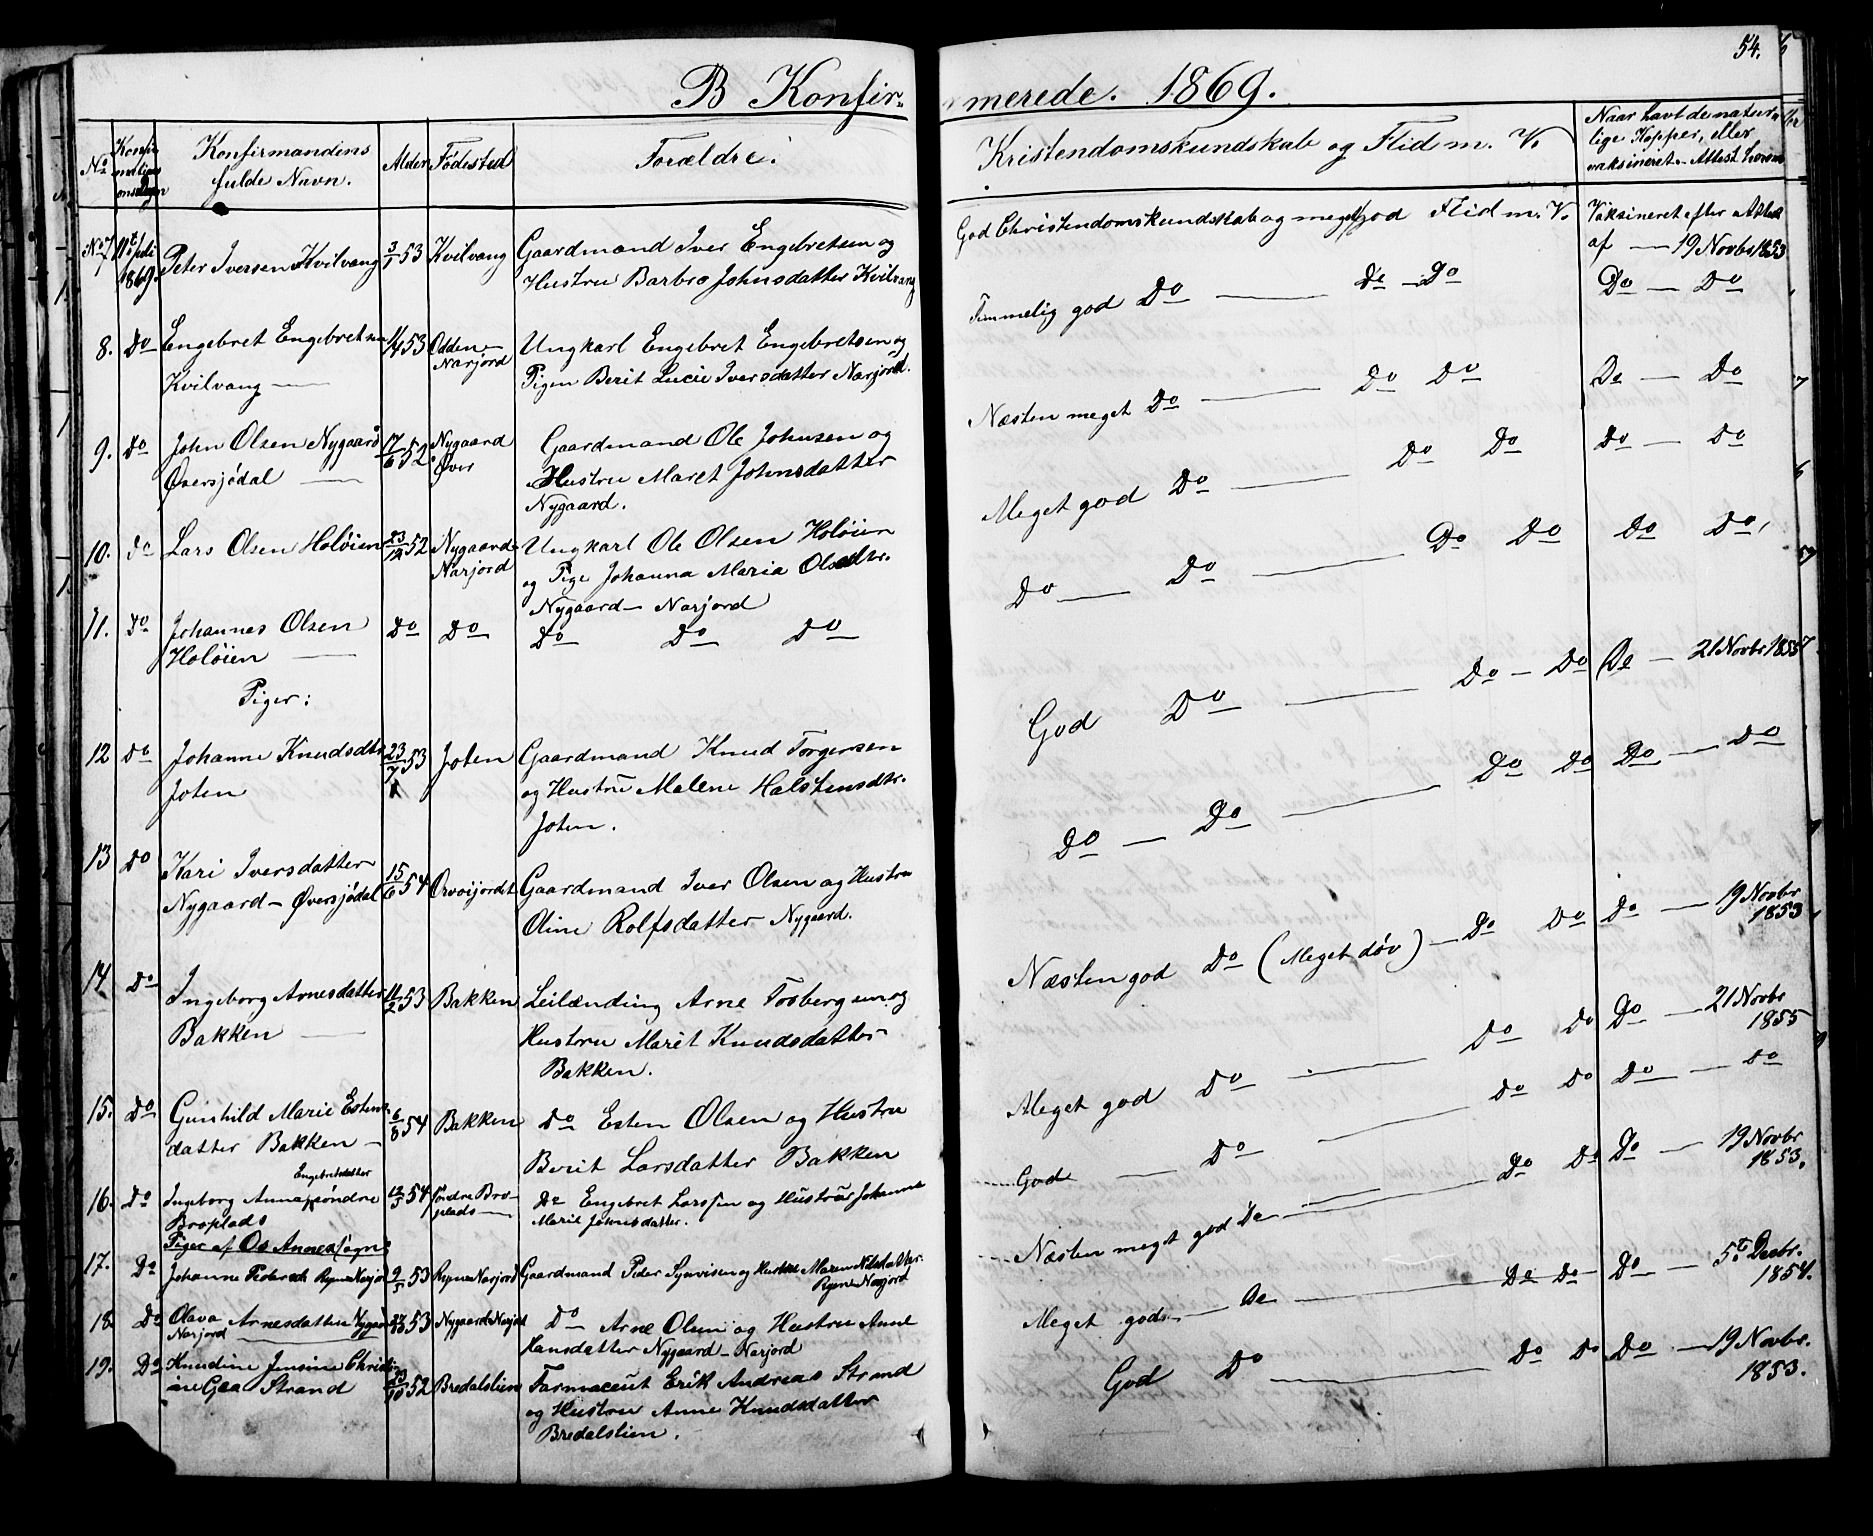 B Konfir- merede. 1869.
54.
No
Konfir mations Dagen
Konfirmandens fulde Navn.
Alder
Fødested
Forældre.
Kristendomskundskab og Flid m. V.
Naar havt de natur-
lige Kopper, eller
vaksineret. Attest herom
No 7 11te Juli 1869. Peter Iversen Kvilvang 3/1 53 Kvilvang Gaardmand Iver Engebretsen og
Hustru Barbro Johnsdatter Kvilvang
God Christendomskundskab og meget god Flid m. V. Vaksineret efter Attest
af — 19 Novbr 1853
8. Do Engebret Engebretsen
Kvilvang — 53 Odden-
Narjord Ungkarl Engebret Engebretsen og
Pigen Berit Lucie Iversdatter Narjord.
Temmelig god Do — Do - Do Do — Do
9. Do John Olsen Nygaard
Øversjødal — 17/6 52 Nygaard
Øver Gaardmand Ole Johnsen og
Hustru Maret Johnsdatter
Nygaard.
Næsten meget Do — Do Do Do — Do
10. Do Lars Olsen Holøien 23/12 52 Nygaard-
Narjord Ungkarl Ole Olsen Holøien
og Pige Johanna Maria Olsdtr.
Nygaard - Narjord
Meget god Do — Do Do Do — Do
11. Do Johannes Olsen
Holøien — Do Do Do Do Do
Do — Do — Do Do Do Do
Piger:
12 Do Johanne Knudsdtr
Joten 23/7 53 Joten Gaardmand Knud Torgersen
og Hustru Malene Halstensdtr.
Joten.
God Do — Do - Do Do — 21 Novbr 1855
13 Do Kari Iversdatter
Nygaard - Øversjødal 15/6 54 Gaardmand Iver Olsen og Hustru
Oline Rolfsdatter Nygaard.
Do — Do — Do Do Do — Do
14 Do Ingeborg Arnesdatter
Bakken — 11/2 53 Bakken Leilænding Arne Torbergsen og
Hustru Marit Knudsdatter
Bakken.
Næsten god Do (Meget døv) — Do Do Do — 19 Novbr
1853
15. Do Gunhild Marie Estens
datter Bakken — 6/8 54 Bakken Do Esten Olsen og Hustru
Berit Larsdatter Bakken
Meget god Do — Do Do Do — 21 Novbr
1855
16. Do Engebretsdatter
Ingeborg Anna søndre
Broplads 54 Søndre Bro-
plads — Do Engebret Larssen og Hustrue Johanne
Marie Johnsdatter.
God — Do — Do Do Do — Do
Piger af Os Annexsogn:
17. Do Johanne Pedersdtr Ryen Narjord 9/5 53 Ryen Narjord Gaardmand Peder Synvisen og Hustru Maren Nilsdatter
Ryen Narjord
Næsten meget god Do — Do Do Do — 19 Novbr
1853.
18. Do Olava Arnesdatter Nygaard
Narjord — 53 Nygaard Narjord Do Arne Olsen og Hustru Anne
Hansdatter Nygaard - Narjord
Meget god — Do — Do Do Do — 5te Decbr.
1854.
19. Do Knudine Jensine Christi-
ine Strand 23/10 52 Bredalslien Farmaceut Erik Andreas Strand
og Hustru Anne Knudsdatter
Bredalslien.
God Do — Do Do Do — 19 Novbr.
1853.